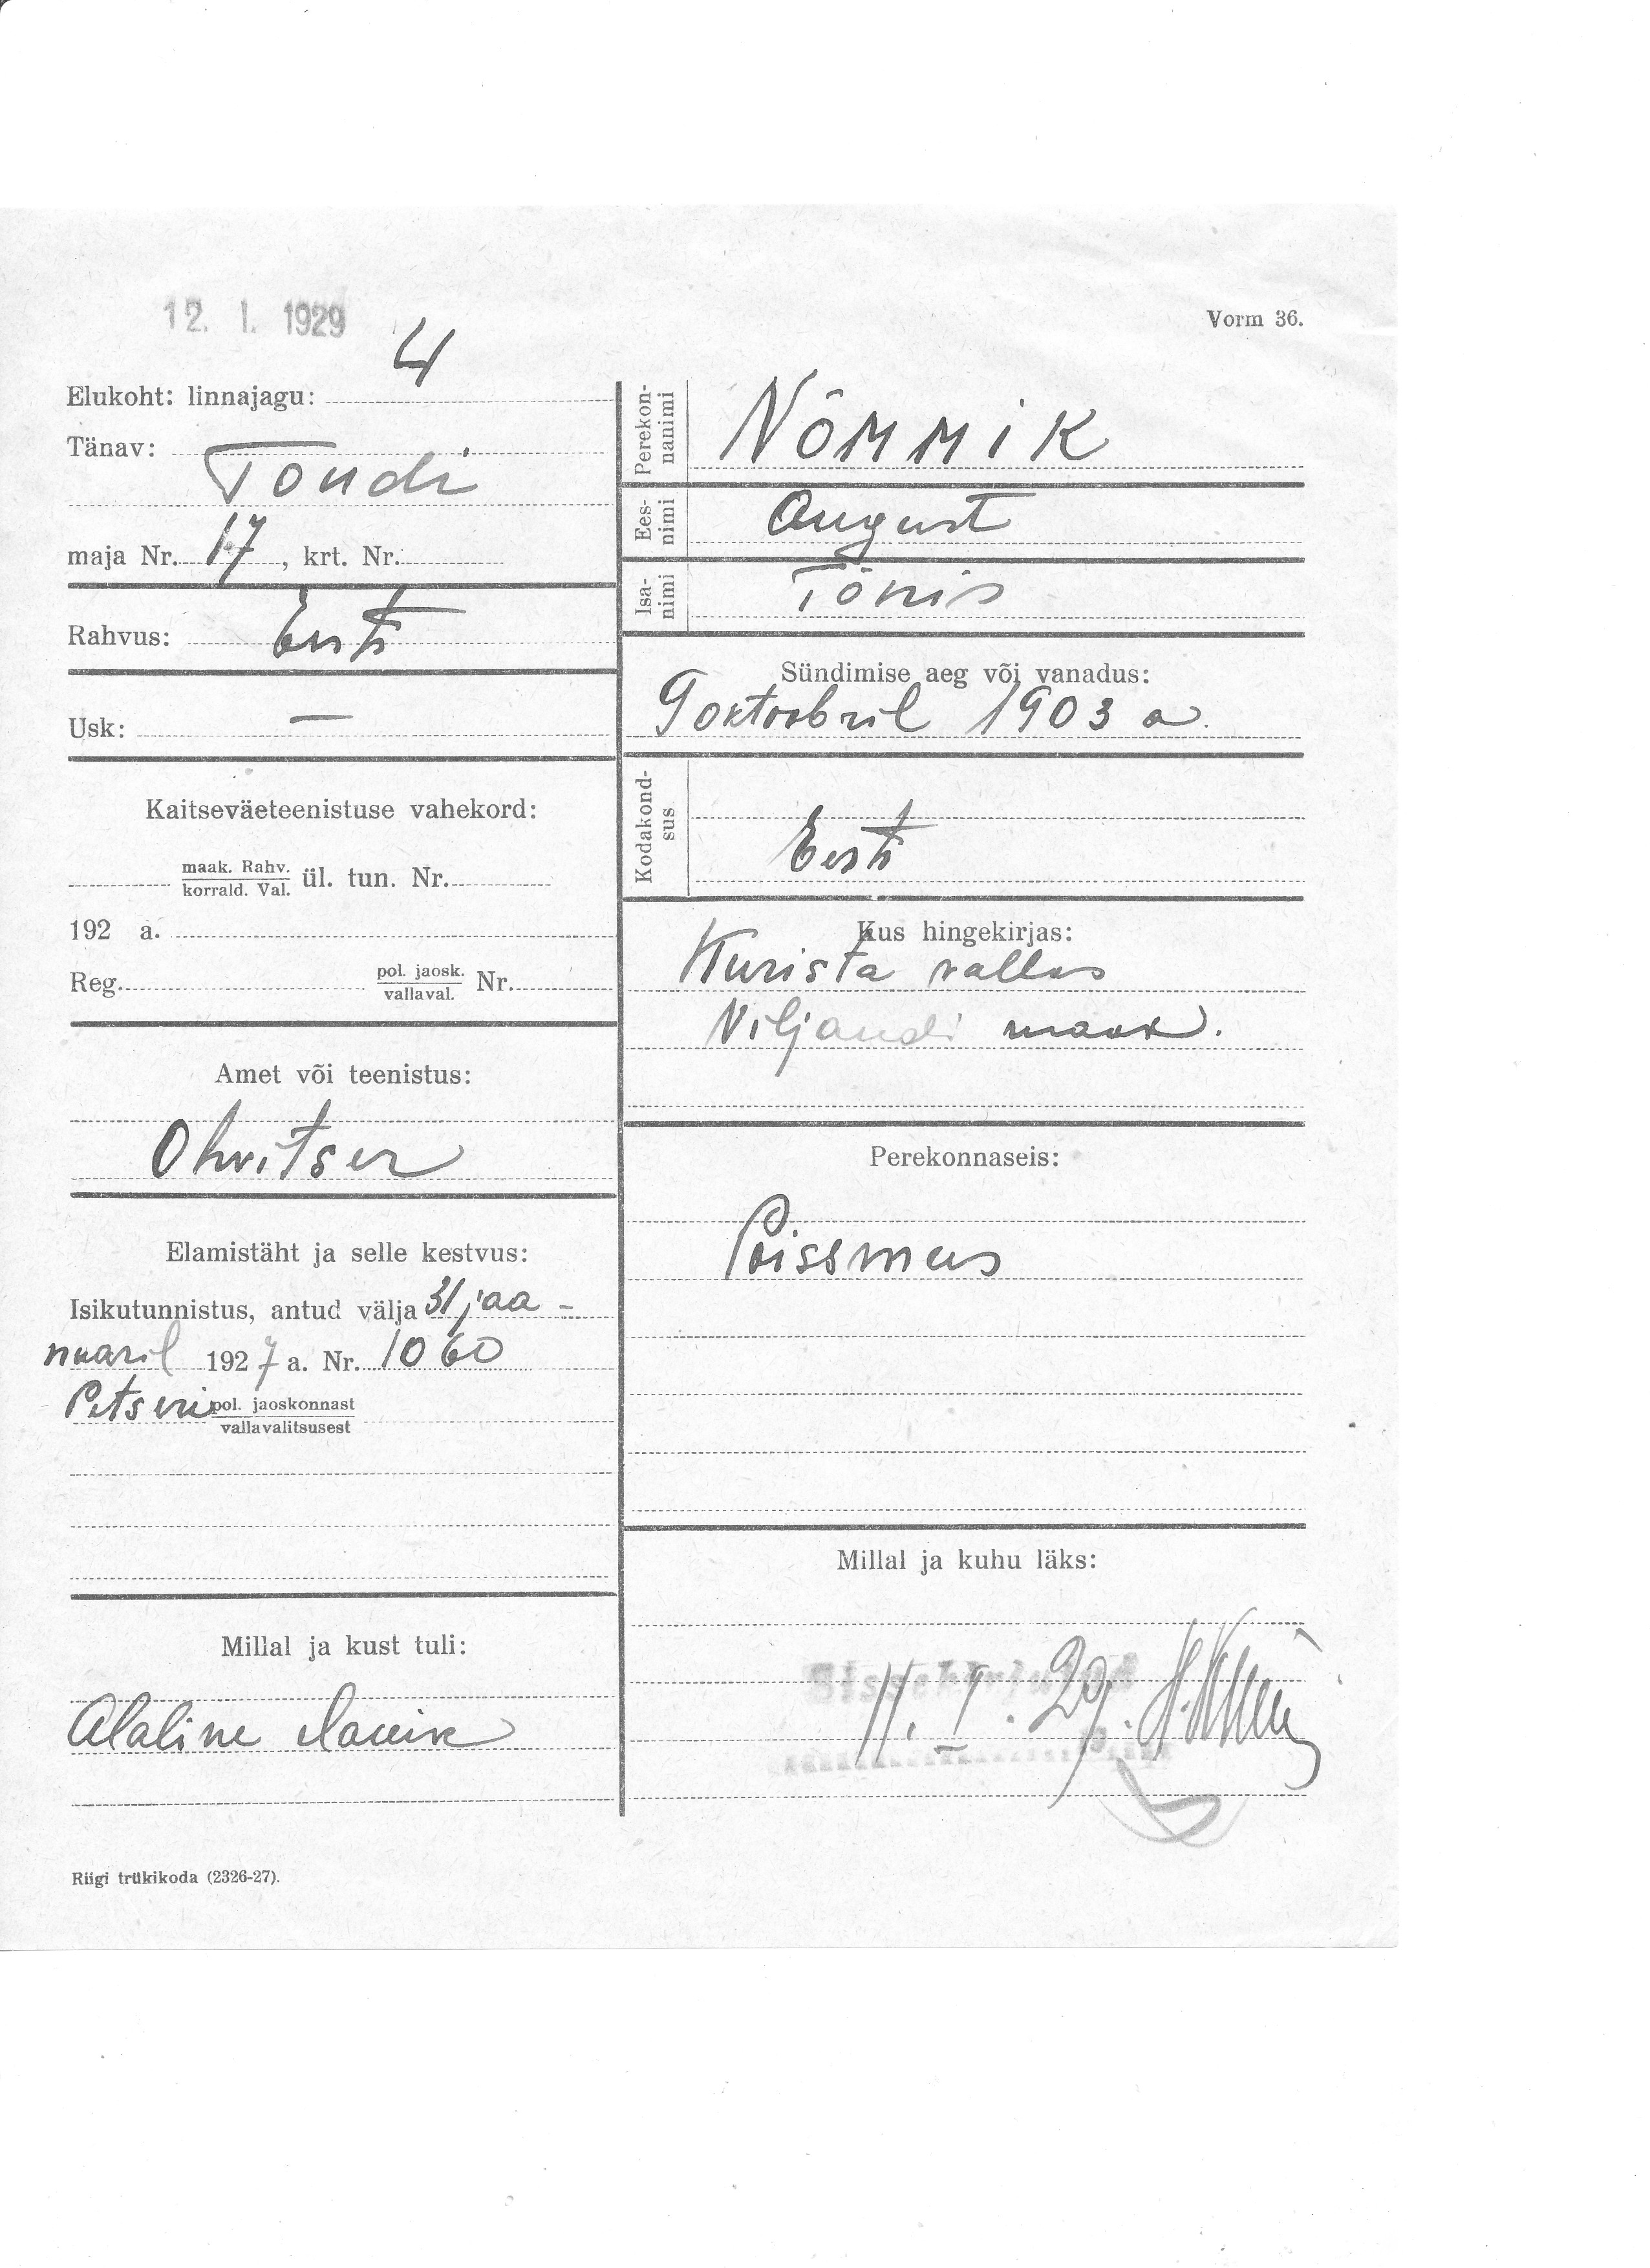 12. I. 1929
Vorm 36.
Elukoht: linnajagu: 4
Tänav:
Tondi
maja Nr. 17, krt. Nr.
Rahvus: Eesti
Usk: —
Kaitseväeteenistuse vahekord:
maak. Rahv.
korrald. Val.
ül. tun. Nr.
192 a.
Reg. pol. jaosk. Nr.
vallaval.
Amet või teenistus:
Ohvitser
Elamistäht ja selle kestvus:
Isikutunnistus, antud välja 31 jaa-
nuaril 1927 a. Nr. 1060
Petseri pol. jaoskonnast
vallavalitsusest
Millal ja kust tuli:
Alaline elanik
Perekon-
nanimi
Nõmmik
Ees-
nimi
August
Isa-
nimi
Tõnis
Sündimise aeg või vanadus:
9 oktoobril 1903 a.
Kodakond-
sus
Eesti
Kus hingekirjas:
Kurista vallas
Viljandi maak.
Perekonnaseis:
Poissmees
Millal ja kuhu läks:
Sissekirjutud
11. I. 29.
Riigi trükikoda (2326-27).